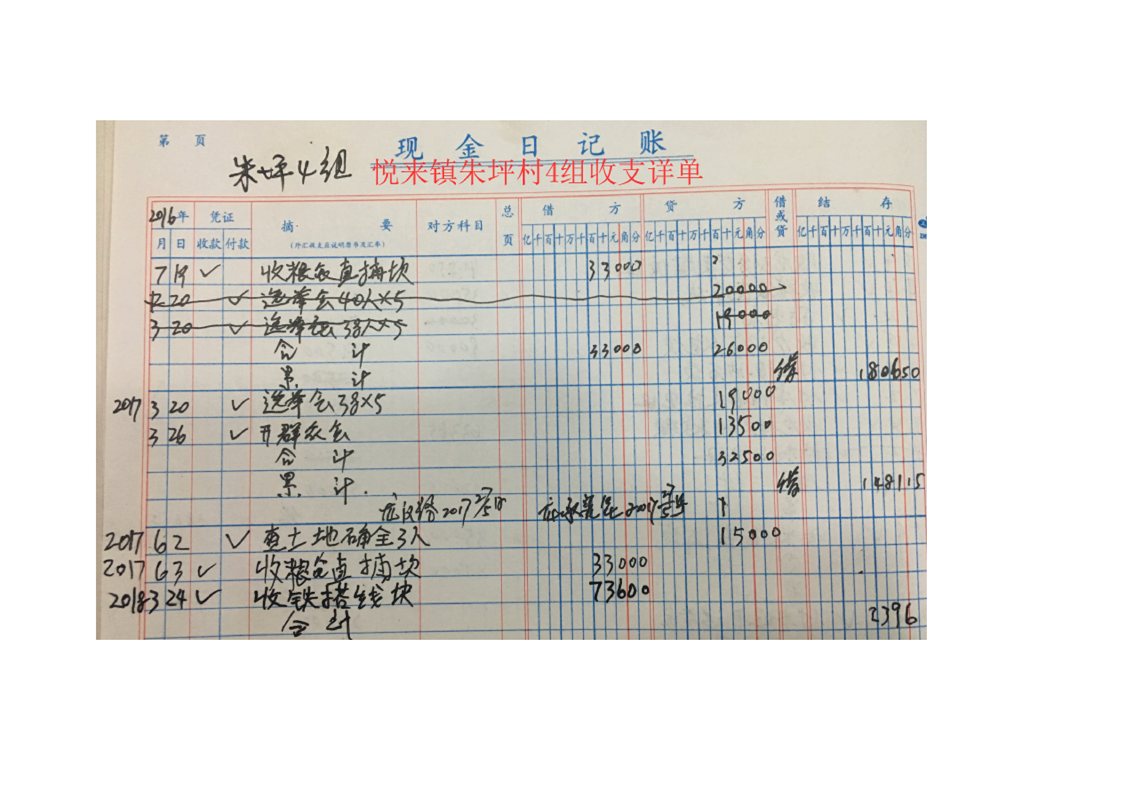 第 页
现 金 日 记 账
朱坪4组 悦来镇朱坪村4组收支详单
2016年 凭证 摘 要 对方科目 总页 借 方 贷 方 借或贷 结 存
月 日 收款 付款 (外汇收支应说明原币及汇率) 亿千百十万千百十元角分 亿千百十万千百十元角分 亿千百十万千百十元角分
7 19 ✓ 收粮仓直 33000
12 20 ✓ 选举会40人×5 20000
3 20 ✓ 选举会38人×5 19000
合 计 33000 26000
累 计 借 180650
2017 3 20 ✓ 选举会38×5 19000
3 26 ✓ 开群众会 13500
合 计 32500
累 计. 借 148115
2017 2017
2017 6 2 ✓ 查土地确全3人 15000
2017 6 3 ✓ 收粮仓直 33000
2018 3 24 ✓ 收铁搭线块 73600
合 计 2396